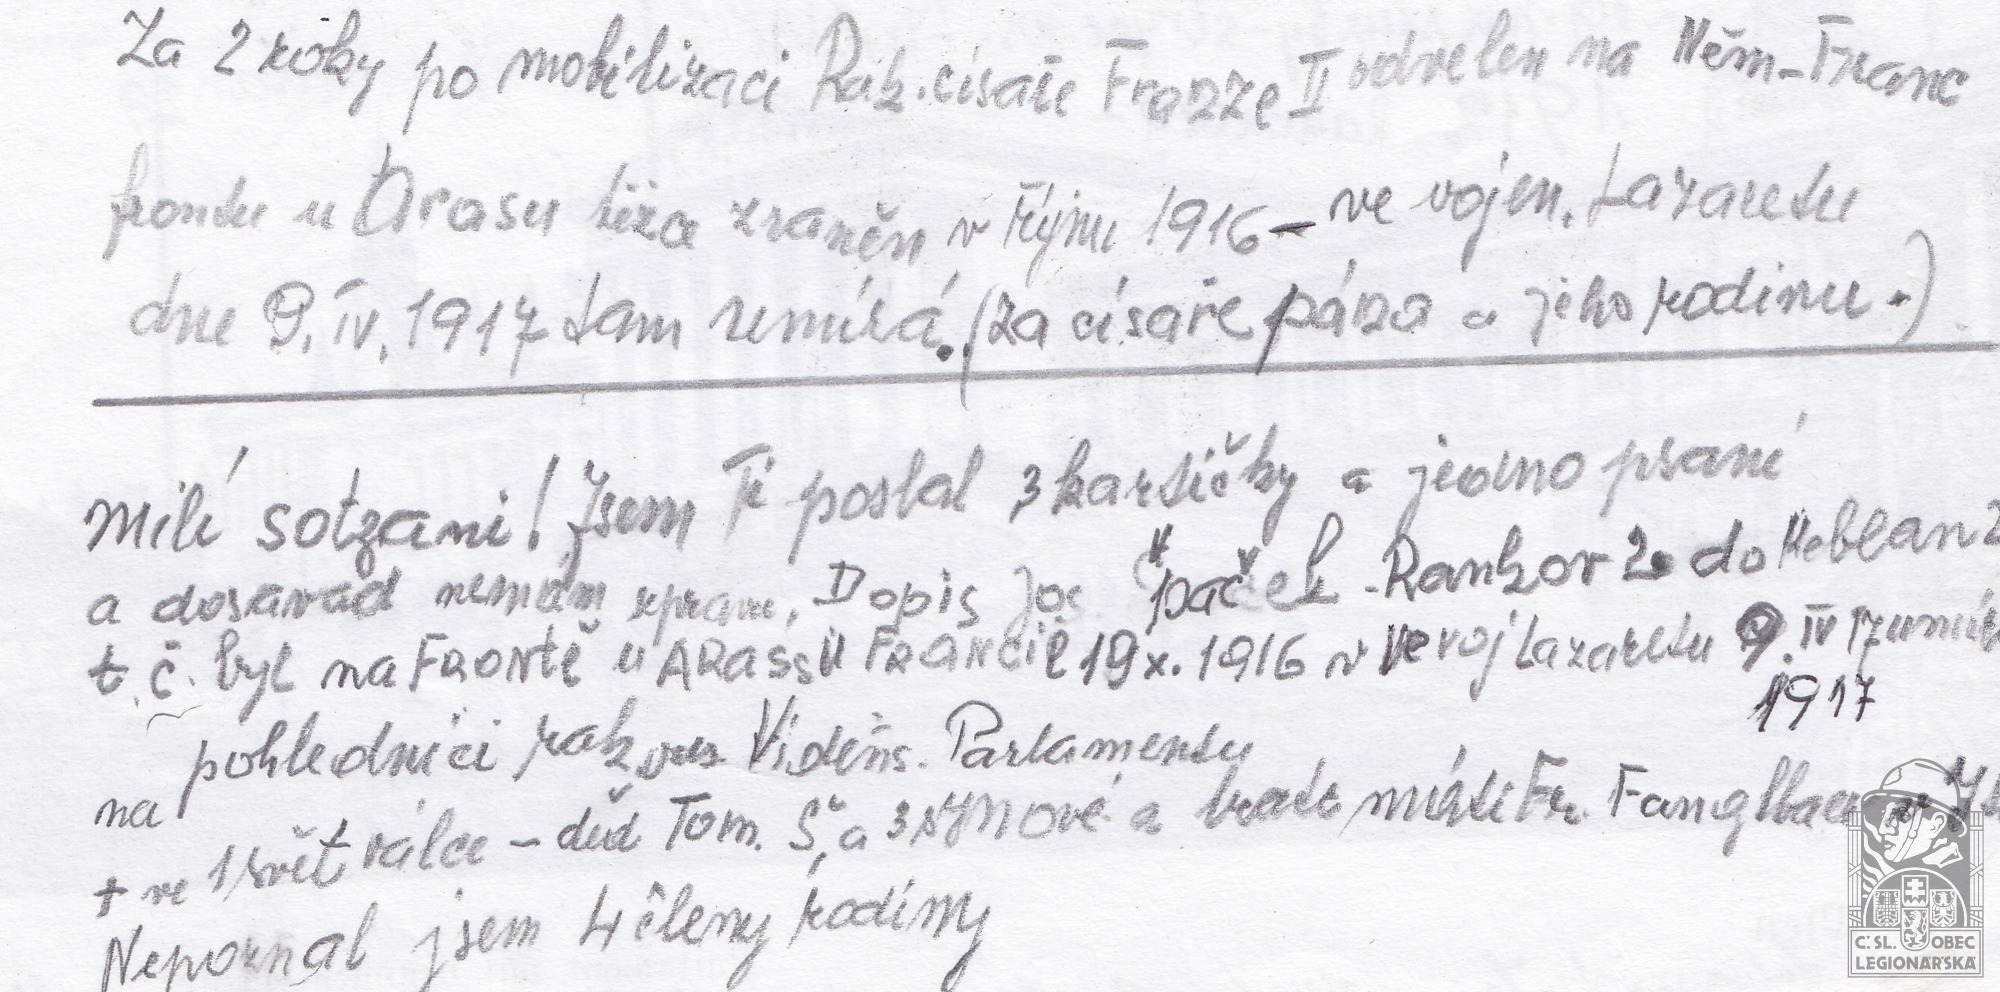 Za 2 roky po mobilizaci Rak. císaře Franze II odvelen na Něm-Franc
frontu u Arasu těža zraněn v říjnu 1916 – ve vojen. Lazaretu
dne 9. IV. 1917 tam umírá. (za císaře pána a jeho rodinu.)
Milé sotzani! Jsem Ti poslal 3 kartičky a jedno psaní
a dosavad nemám zprav. Dopis Jos Špaček - Rankov 20 do Heblan
t. č. byl na Frontě u ARASSU FRANCIE 19 x. 1916 v ve voj Lazaretu 9. IV 17
1917
na pohlednici rak Vídeňs. Parlamentu
† ve 1 svět válce – děd Tom. Š. a 3 synové a bratr Fr.
Nepoznal jsem 4 členy rodiny
Č:SL. OBEC
LEGIONÁŘSKÁ